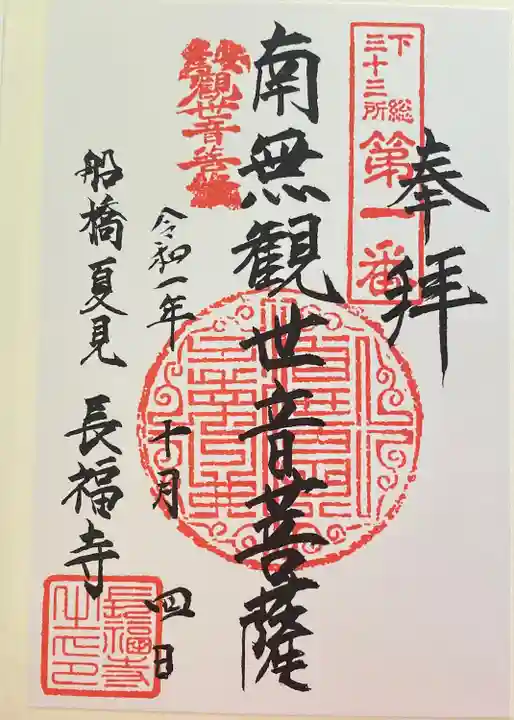 奉拝
下総三十三所
第一番
南無観世音菩薩
令和一年
十月
四日
船橋夏見
長福寺
長福寺之印